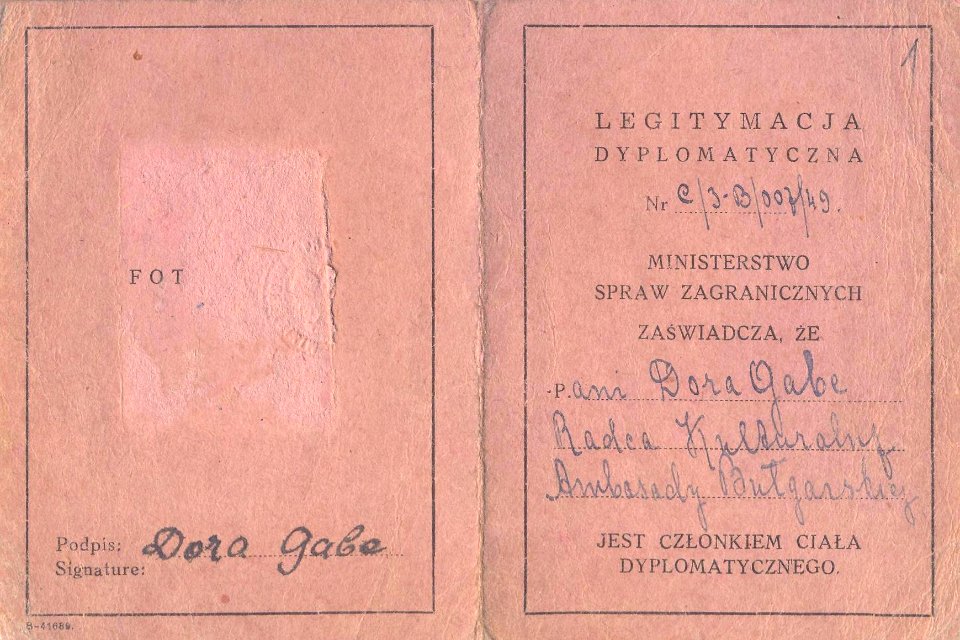 FOT
Podpis: Dora Gabe
Signature:
B-41689.
1
LEGITYMACJA
DYPLOMATYCZNA
Nr C/3-B/007/49.
MINISTERSTWO
SPRAW ZAGRANICZNYCH
ZAŚWIADCZA, ŻE
Pani Dora Gabe
Radca Kulturalny
Ambasady Bułgarskiej
JEST CZŁONKIEM CIAŁA
DYPLOMATYCZNEGO.